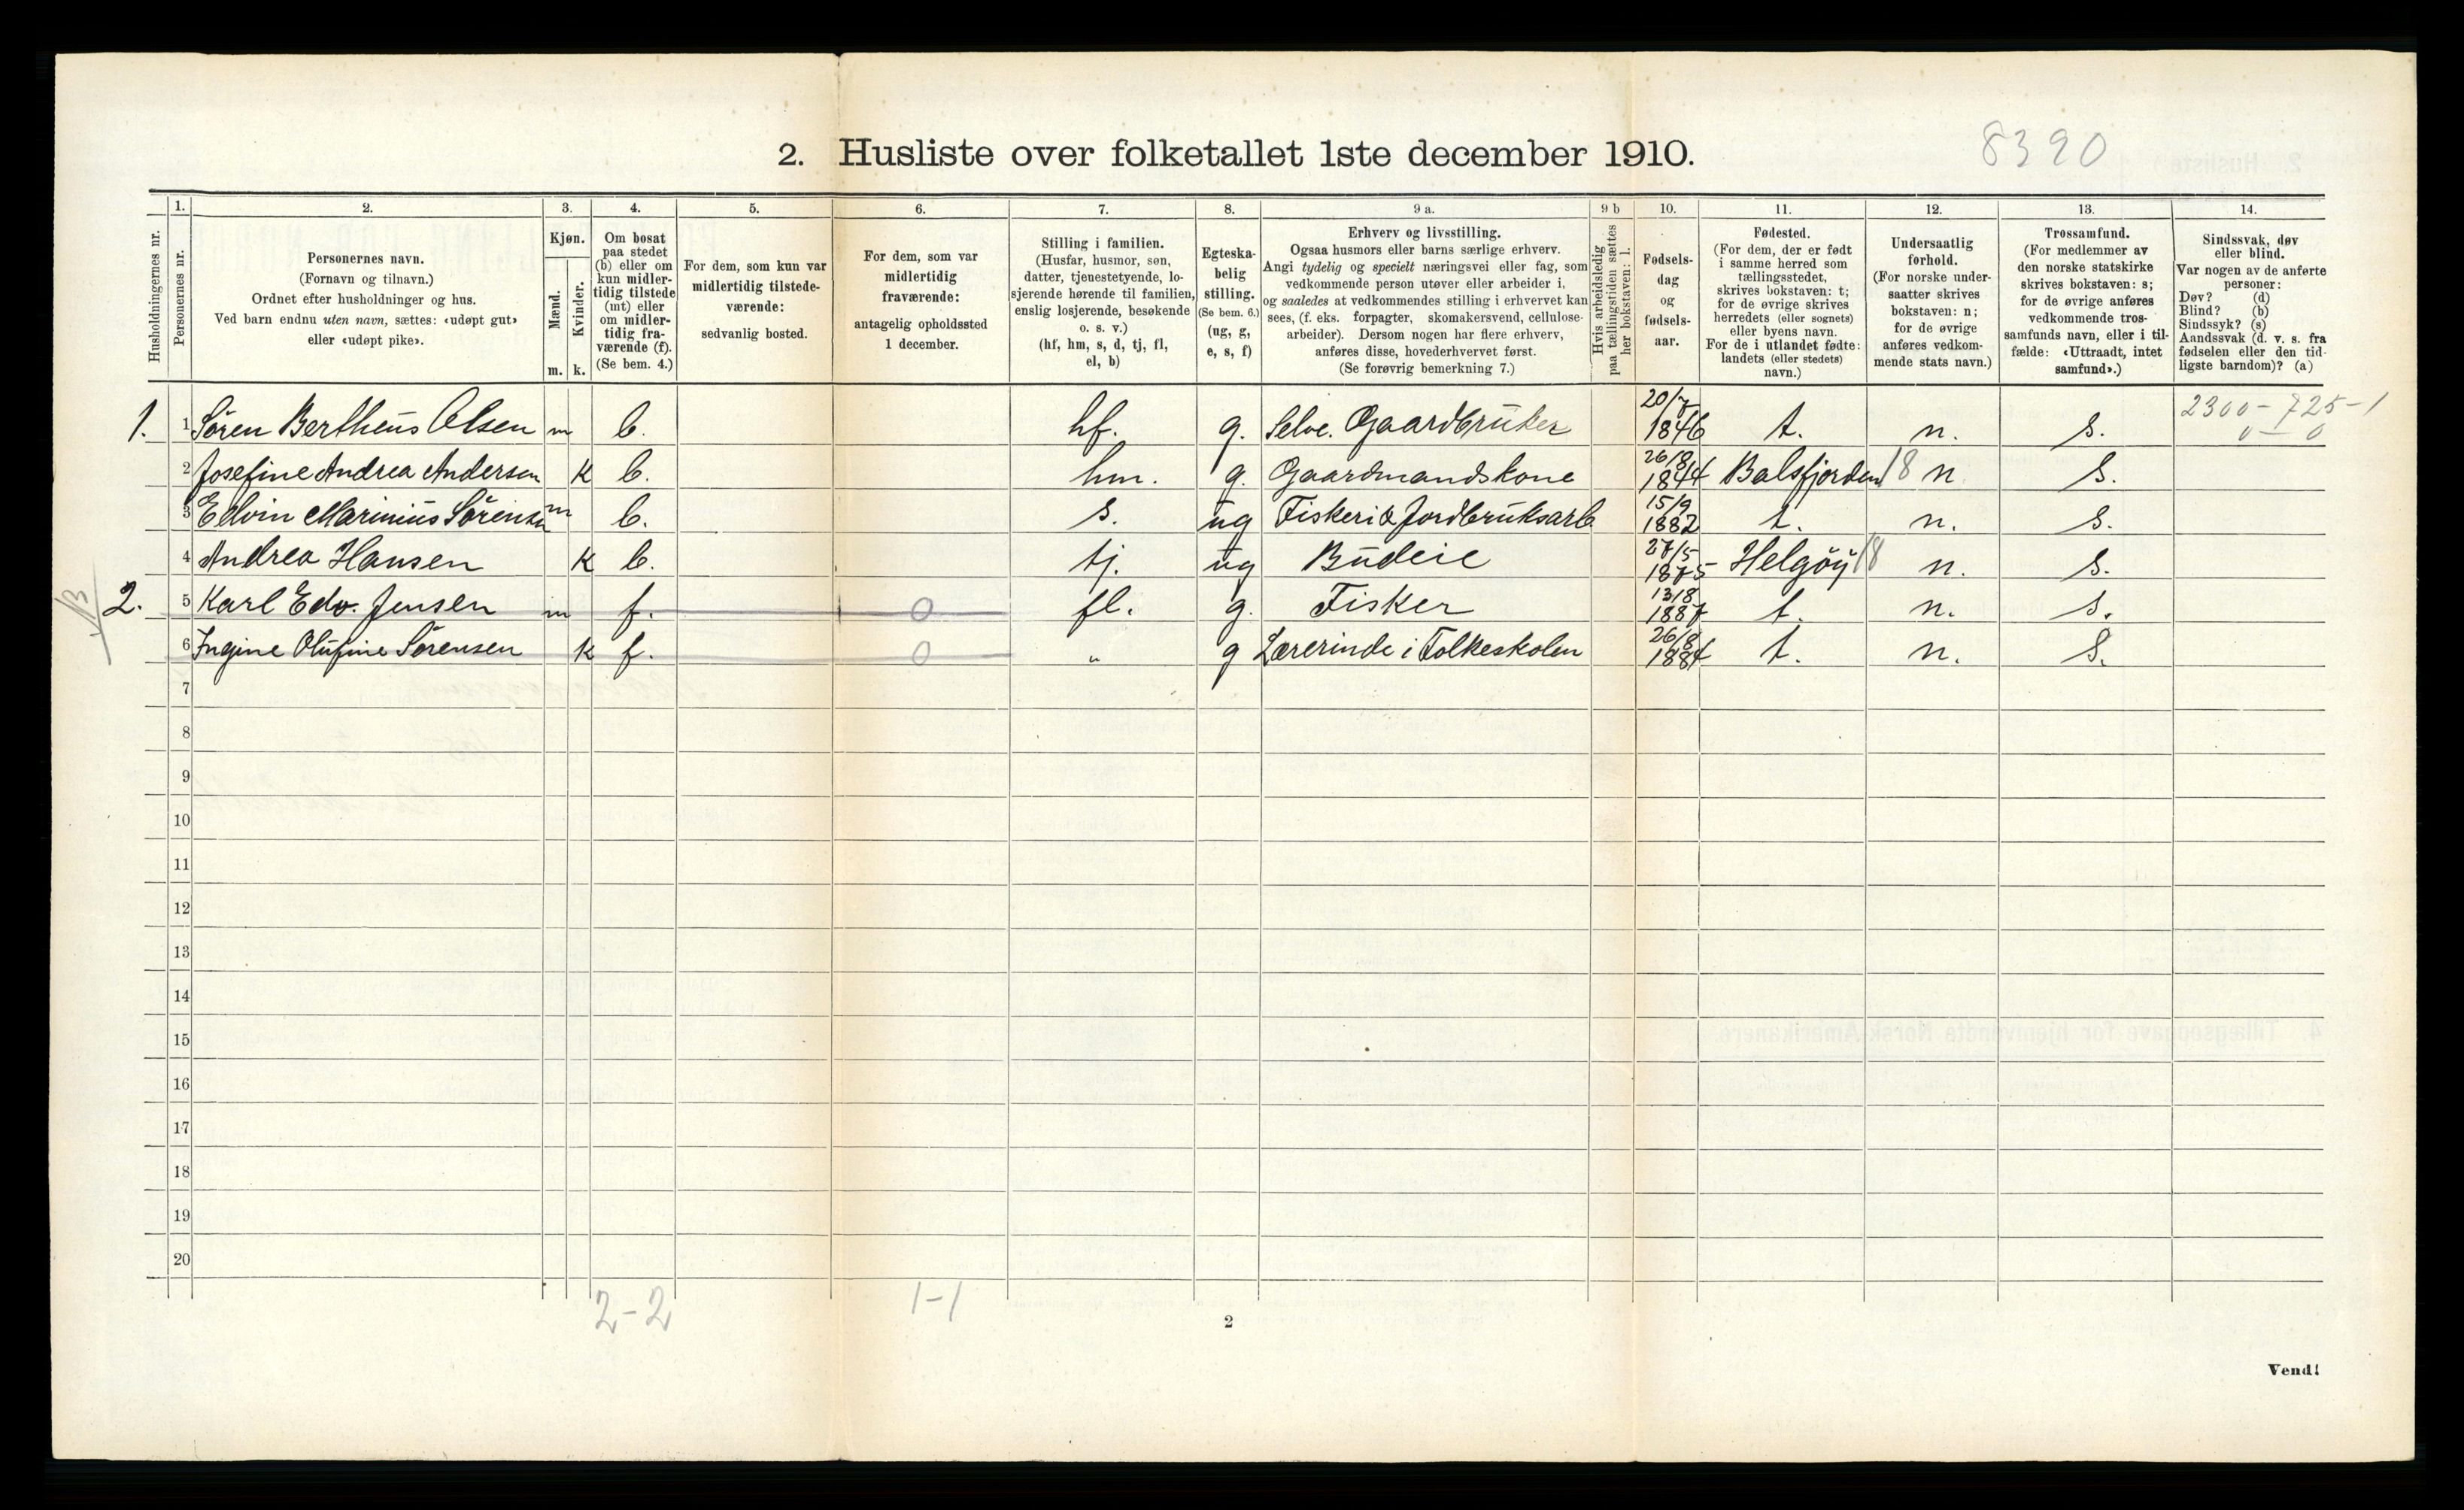 2. Husliste over folketallet 1ste december 1910.
8390
Husholdningernes nr.
1.
Personernes nr.
2.
Personernes navn.
(Fornavn og tilnavn.)
Ordnet efter husholdninger og hus.
Ved barn endnu uten navn, sættes: «udøpt gut»
eller «udøpt pike».
3.
Kjøn.
Mænd.
Kvinder.
m. k.
4.
Om bosat
paa stedet
(b) eller om
kun midler-
tidig tilstede
(mt) eller
om midler-
tidig fra-
værende (f).
(Se bem. 4.)
5.
For dem, som kun var
midlertidig tilstede-
værende:
sedvanlig bosted.
6.
For dem, som var
midlertidig
fraværende:
antagelig opholdssted
1 december.
7.
Stilling i familien.
(Husfar, husmor, søn,
datter, tjenestetyende, lo-
sjerende hørende til familien,
enslig losjerende, besøkende
o. s. v.)
(hf, hm, s, d, tj, fl,
el, b)
8.
Egteska-
belig
stilling.
(Se bem. 6.)
(ug, g,
e, s, f)
9 a.
Erhverv og livsstilling.
Ogsaa husmors eller barns særlige erhverv.
Angi tydelig og specielt næringsvei eller fag, som
vedkommende person utøver eller arbeider i,
og saaledes at vedkommendes stilling i erhvervet kan
sees, (f. eks. forpagter, skomakersvend, cellulose-
arbeider). Dersom nogen har flere erhverv,
anføres disse, hovederhvervet først.
(Se forøvrig bemerkning 7.)
9 b
Hvis arbeidsledig
paa tællingstiden sættes
her bokstaven: l.
10.
Fødsels-
dag
og
fødsels-
aar.
11.
Fødested.
(For dem, der er født
i samme herred som
tællingsstedet,
skrives bokstaven: t;
for de øvrige skrives
herredets (eller sognets)
eller byens navn.
For de i utlandet fødte:
landets (eller stedets)
navn.)
12.
Undersaatlig
forhold.
(For norske under-
saatter skrives
bokstaven: n;
for de øvrige
anføres vedkom-
mende stats navn.)
13.
Trossamfund.
(For medlemmer av
den norske statskirke
skrives bokstaven: s;
for de øvrige anføres
vedkommende tros-
samfunds navn, eller i til-
fælde: «Uttraadt, intet
samfund».)
14.
Sindssvak, døv
eller blind.
Var nogen av de anførte
personer:
Døv? (d)
Blind? (b)
Sindssyk? (s)
Aandssvak (d. v. s. fra
fødselen eller den tid-
ligste barndom)? (a)
1. 1 Sören Bertheus Olsen m b. hf. g. Selve. Gaardbruker 20/7 1846 t. n. s. 2300-725-1
0-0
2 Josefine Andrea Andersen k b. hm. g. Gaardmandskone 26/8 1844 Balsfjorden 18 n s.
3 Edvin Marinius Sörensen m b. s. ug Fiskeri & Jordbruksarb 15/9 1882 t. n. s.
4 Andrea Hansen k b. tj. ug Budeie 27/5 1875 Helgöy 18 n. s.
2. 5 Karl Edv. Jensen m f. 0 fl. g. Fisker 13/8 1887 t. n. s.
6 Ingine Olufine Sörensen k f. 0 „ g Lærerinde i Folkeskolen 26/8 1884 t. n. s.
7
8
9
10
11
12
13
14
15
16
17
18
19
20
2-2 1-1
2
Vend!